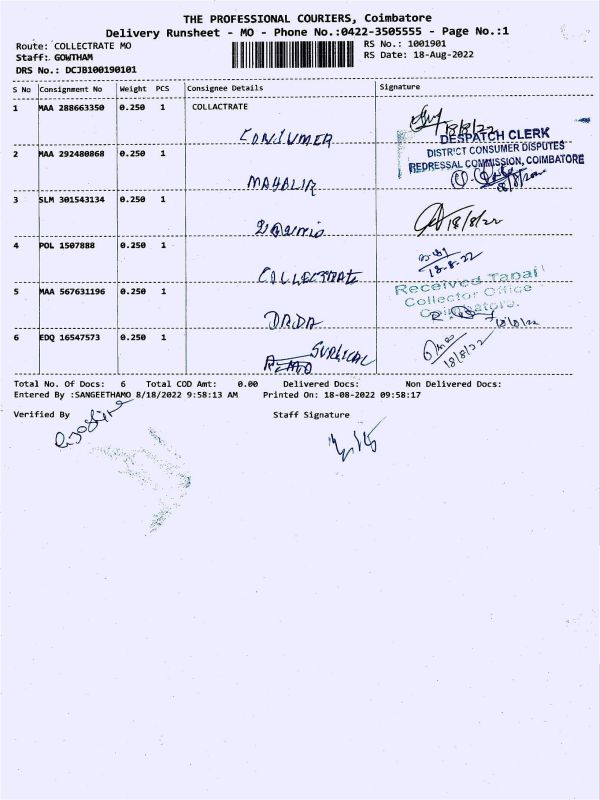 THE PROFESSIONAL COURIERS, Coimbatore
Delivery Runsheet - MO - Phone No.:0422-3505555 - Page No.:1
Route: COLLECTRATE MO
RS No.: 1001901
Staff: GOWTHAM
RS Date: 18-Aug-2022
DRS No.: DCJB100190101
S No Consignment No Weight PCS Consignee Details Signature
1 MAA 288663350 0.250 1 COLLACTRATE
CONSUMER 18/8/22
DESPATCH CLERK
DISTRICT CONSUMER DISPUTES
REDRESSAL COMMISSION, COIMBATORE
2 MAA 292480868 0.250 1
MAHALIR
3 SLM 301543134 0.250 1
18/8/22
4 POL 1507888 0.250 1
COLLECTRATE 18-8-22
Received Tapal
Collector Office
Coimbatore.
5 MAA 567631196 0.250 1
DRDA 18/8/22
6 EDQ 16547573 0.250 1
SURGICAL 18/8/22
Total No. Of Docs: 6 Total COD Amt: 0.00 Delivered Docs: Non Delivered Docs:
Entered By :SANGEETHAMO 8/18/2022 9:58:13 AM Printed On: 18-08-2022 09:58:17
Verified By Staff Signature